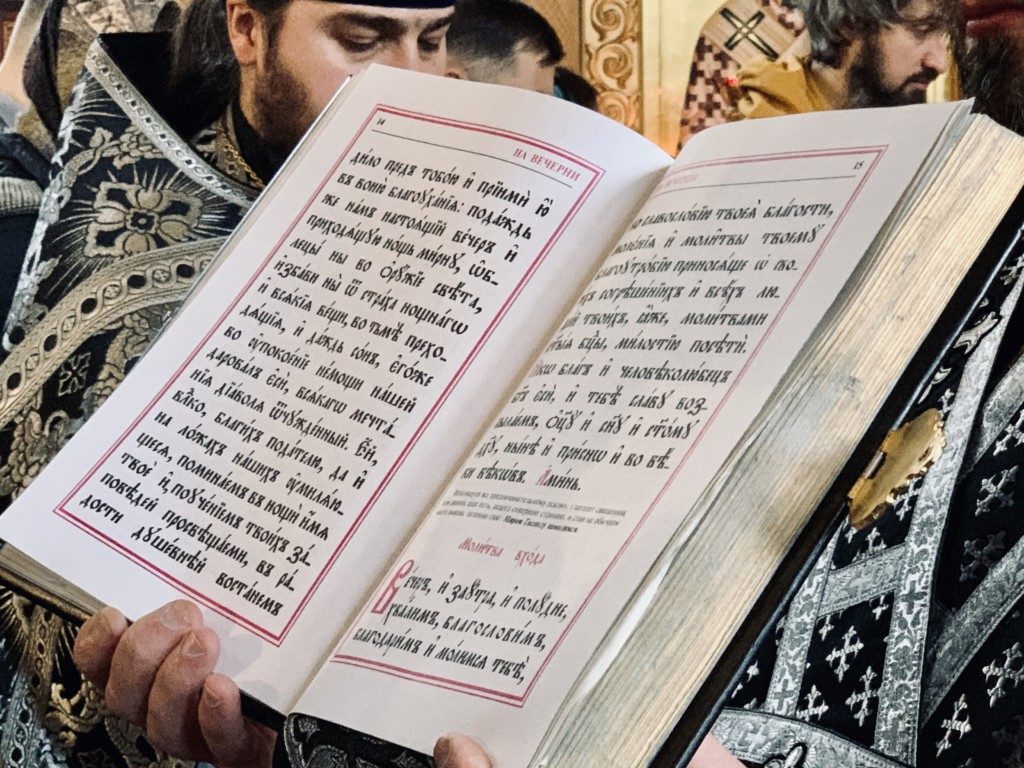 14
НА ВЕЧЕРНИ
ди́ло пред̾ тобо́ю и҆ прїимѝ ю҆̀
въ воню̀ благоꙋха́нїѧ: пода́ждь
же на́мъ настоѧ́щїй ве́черъ и҆
приходѧ́щꙋю но́щь ми́рнꙋ, ѡ҆б-
лецы́ ны во ѻ҆рꙋ́жїе свѣ́та,
и҆зба́ви ны̀ ѿ стра́ха нощна́гѡ
и҆ всѧ́кїѧ ве́щи, во тьмѣ̀ прехо-
дѧ́щїѧ, и҆ да́ждь со́нъ, є҆го́же
во ᲂу҆покое́нїе не́мощи на́шей
дарова́лъ є҆сѝ, всѧ́кагѡ мечта́-
нїѧ дїа́волѧ ѿчꙋжде́нный. Є҆́й,
влⷣко, благи́хъ пода́телю, да и҆
на ло́жахъ на́шихъ ᲂу҆милѧ́ю-
щесѧ, помина́емъ въ нощѝ и҆́мѧ
твоѐ: и҆, поꙋче́нїемъ твои́хъ за́-
повѣдей просвѣща́еми, въ ра́-
дости дꙋше́внѣй воста́немъ
15
славосло́вїю твоеѧ̀ бла́гости,
моле́нїѧ и҆ моли҄твы твоемꙋ̀
благоꙋтро́бїю приносѧ́ще ѡ҆ сво-
согрѣше́нїихъ и҆ всѣ́хъ лю-
твои́хъ, ꙗ҆̀же, моли́твами
бцⷣы, ми́лостїю посѣтѝ.
бл҃гъ и҆ человѣколю́бецъ
є҆сѝ, и҆ тебѣ̀ сла́вꙋ воз-
ѻ҆ц҃ꙋ̀ и҆ сн҃ꙋ и҆ ст҃о́мꙋ
дх҃ꙋ, ны́нѣ и҆ при́снѡ и҆ во вѣ́-
ки вѣкѡ́въ. А҆ми́нь.
Моли́тва вхо́да
Ве́черъ, и҆ заꙋ́тра, и҆ полꙋ́дне,
хва́лимъ, благослови́мъ,
благодари́мъ и҆ мо́лимсѧ тебѣ̀,